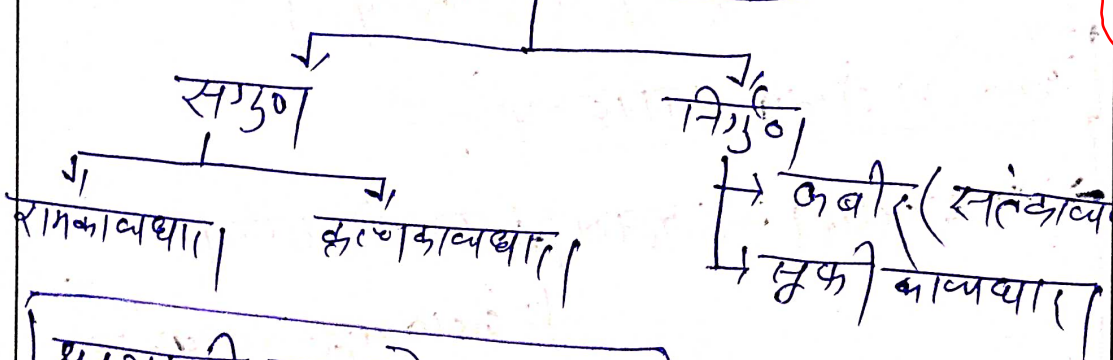 सगुण निर्गुण
रामकाव्यधारा कृष्णकाव्यधारा
कबीर (संतकाव्य
सूफी काव्यधारा